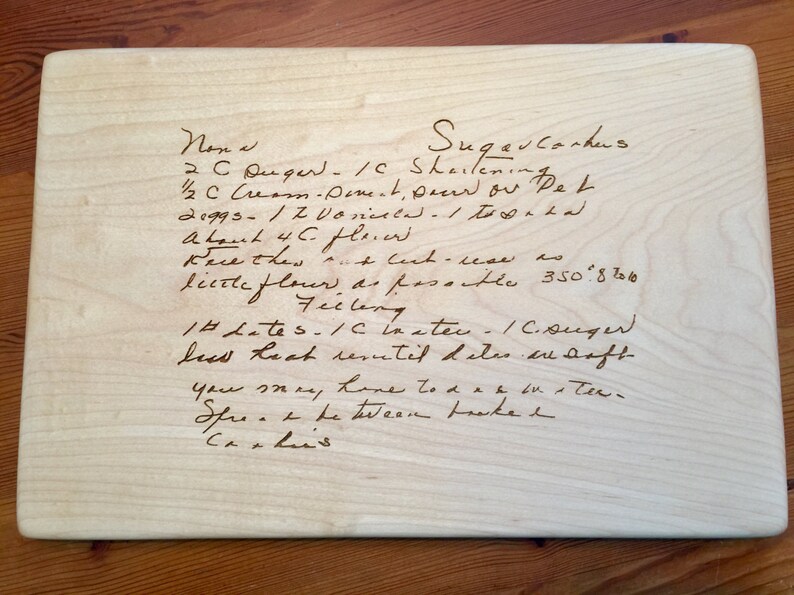 Nona Sugar Cookies
2 C sugar - 1 C Shortening
1/2 C Cream - sweet, sour or Pet
2 eggs - 1 t Vanilla - 1 t soda
About 4 C. flour
Roll thin and cut - use as
little flour as possible 350° 8 to 10
Filling
1# dates - 1 C water - 1 C. sugar
low heat until dates are soft
you may have to add water -
Spread between baked
Cookies